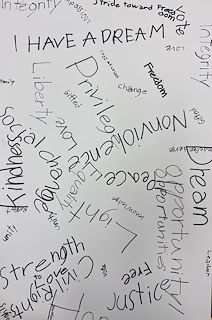 Integrity
Stride toward Freedom
Vote
I HAVE A DREAM
Love
Integrity
Family
Liberty
Gifted
Privilege
change
Freedom
Gifted
Nonviolence
Love
social change
Kindness
Equality
Peace
Dream
opportunity/
opportunities
Light
unity
unity
Strength
to Love
Civil Rights
Free
Justice